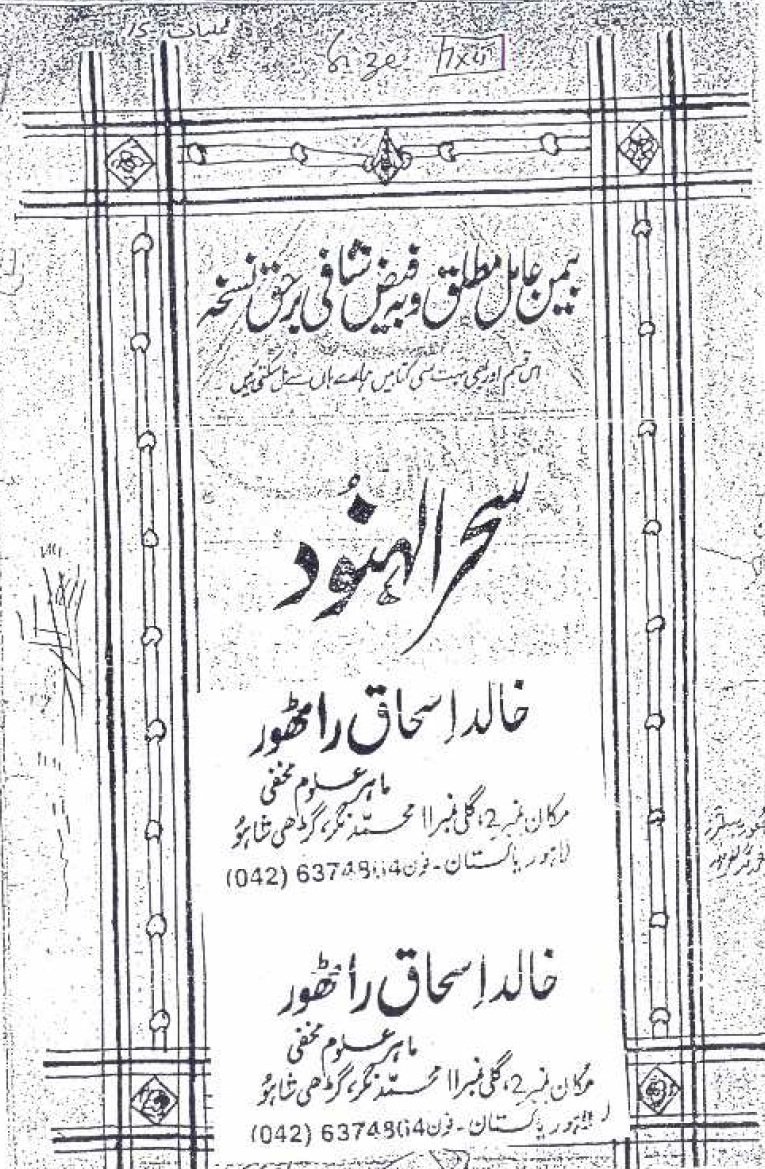 Size
بیمن عامل مطلق و بہ فیض شافی برحق نسخہ
اس قسم اور بھی بہت سی کتابیں ہمارے ہاں سے مل سکتی ہیں
سحر الہنُود
خالد اِسحاق راٹھور
ماہر علوم مخفی
مکان نمبر 2، گلی نمبر 11 محمّد نگر، گڑھی شاہُو
لاہور پاکستان - فون 6374864 (042)
خالد اِسحاق راٹھور
ماہر علوم مخفی
مکان نمبر 2، گلی نمبر 11 محمّد نگر، گڑھی شاہُو
لاہور پاکستان - فون 6374864 (042)